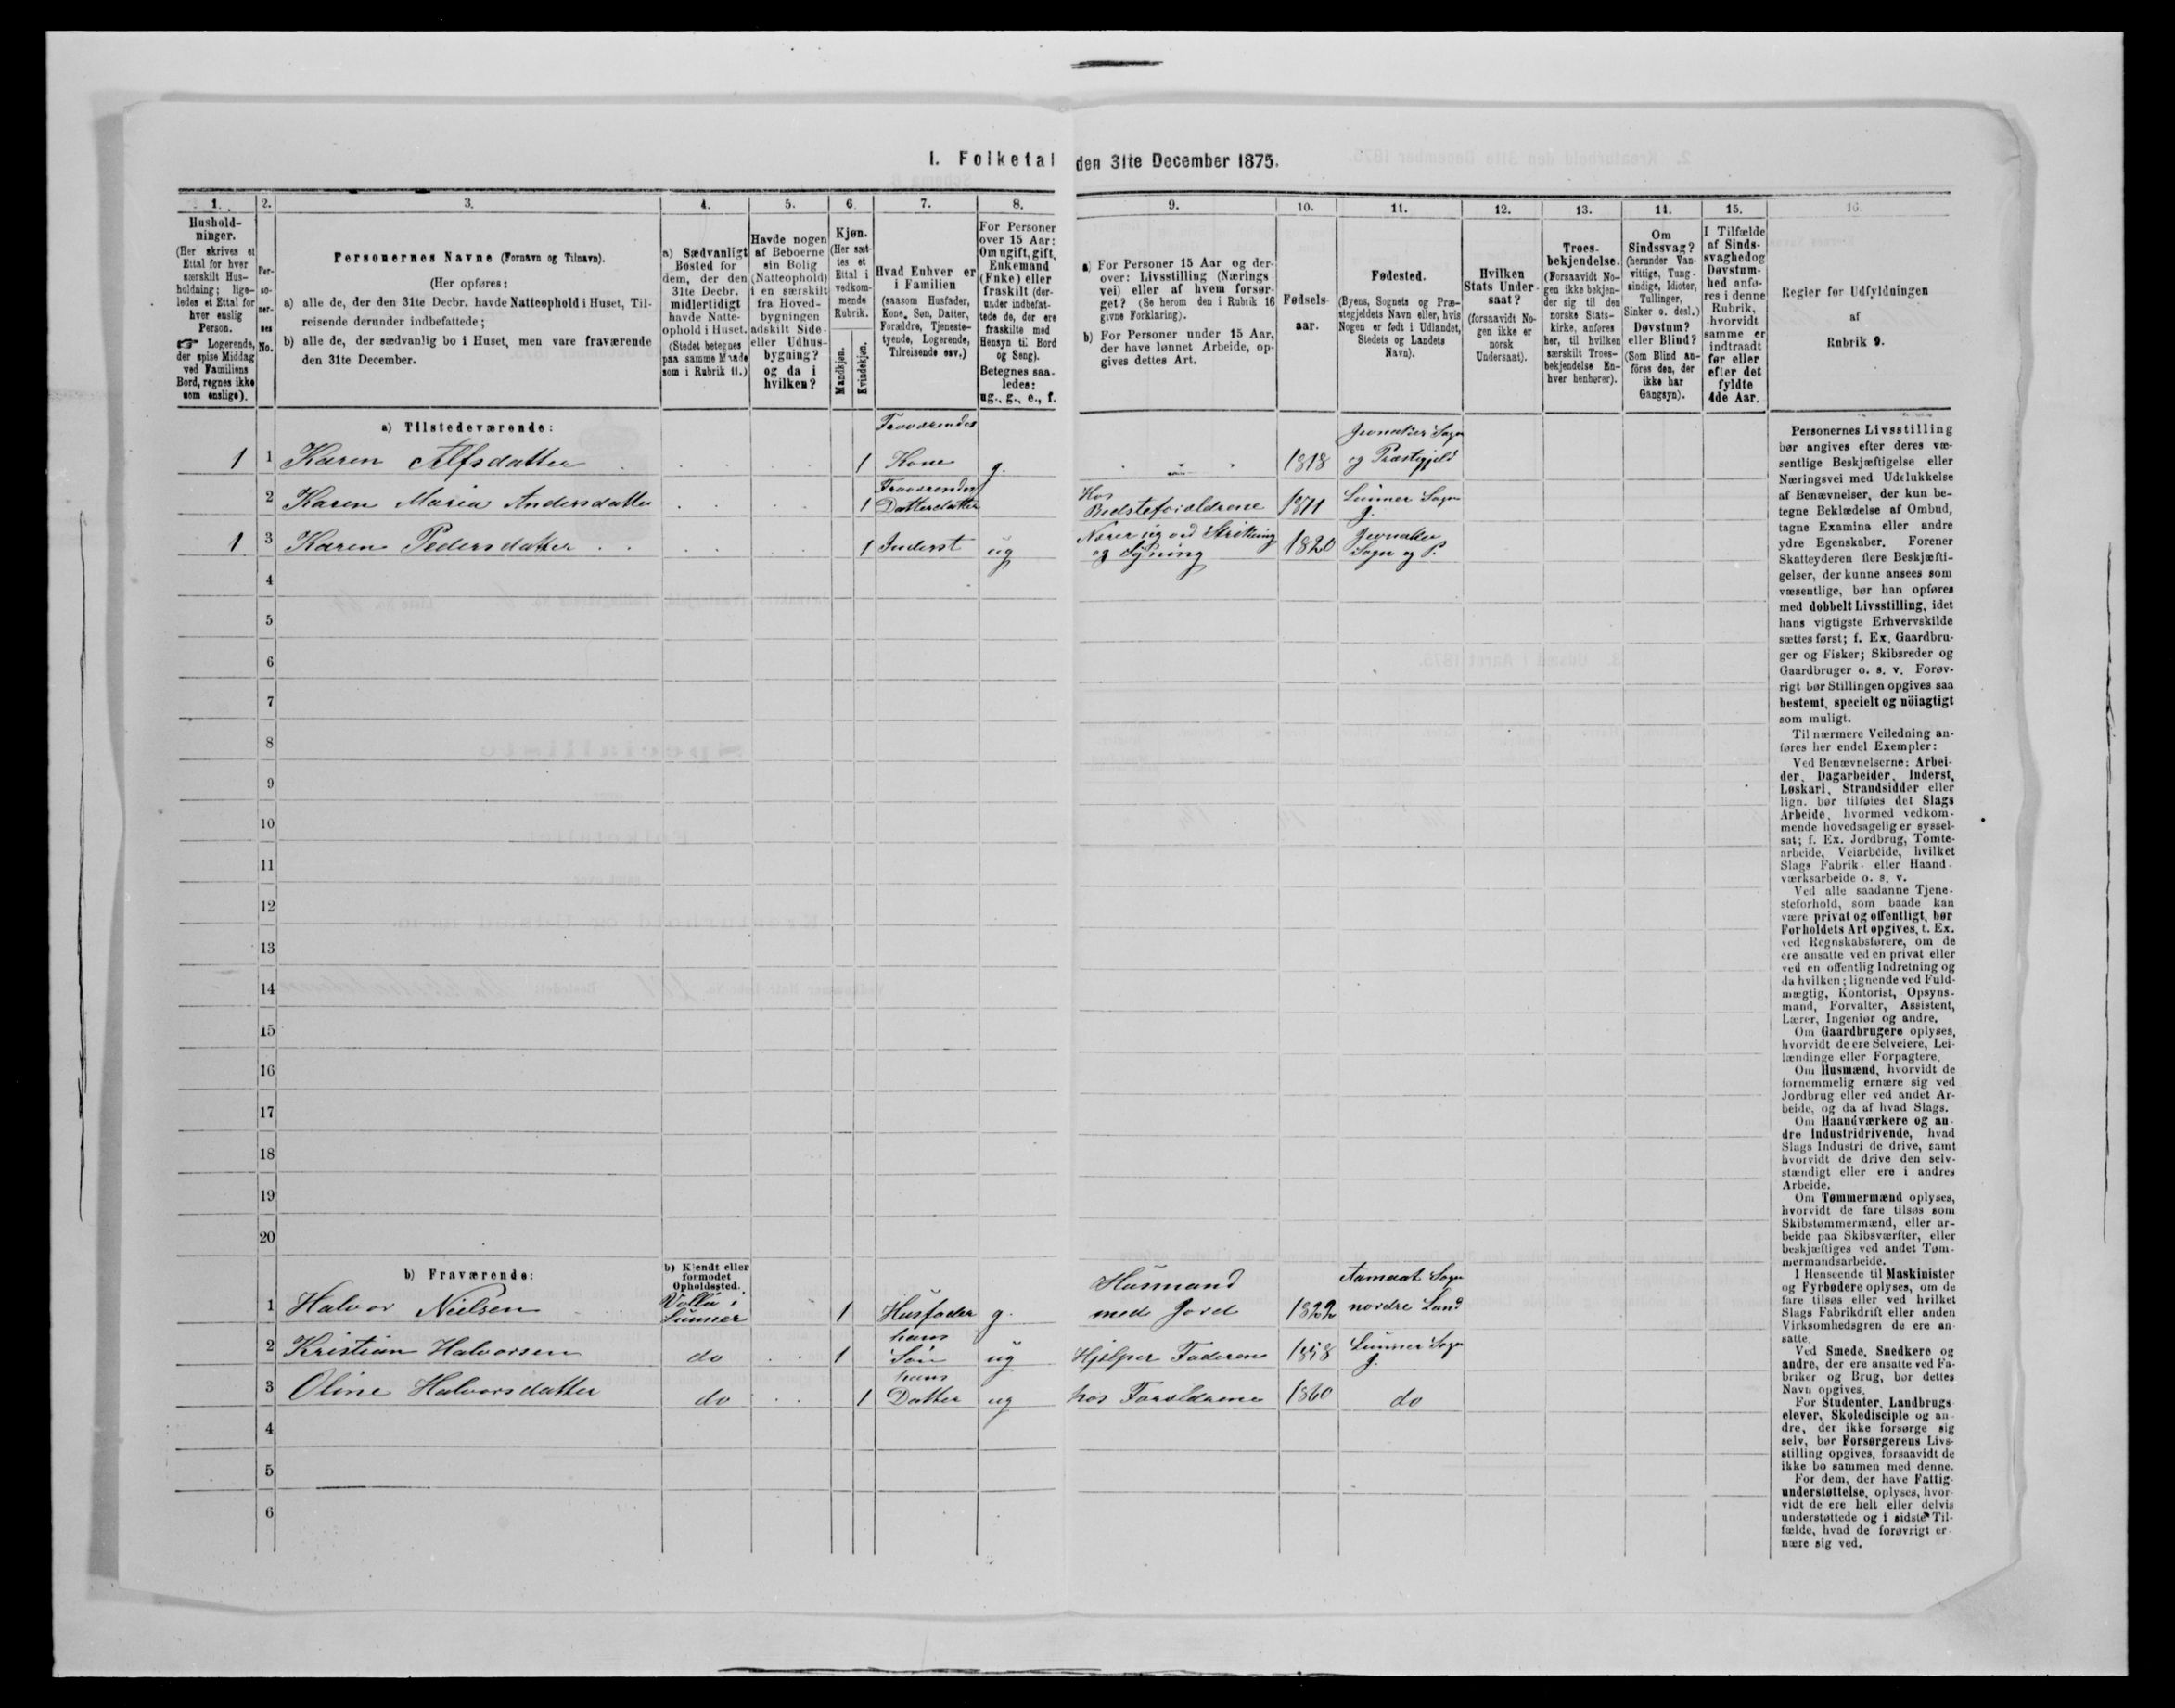 I. Folketal den 31te December 1875.
1. 2. 3. 4. 5. 6. 7. 8. 9. 10. 11. 12. 13. 14. 15. 16.
Hushold-
ninger.
(Her skrives et
Ettal for hver
særskilt Hus-
holdning; lige-
ledes et Ettal for
hver enslig
Person.
☞ Logerende,
der spise Middag
ved Familiens
Bord, regnes ikke
som enslige).
Per-
so-
ner-
nes
No.
Personernes Navne (Fornavn og Tilnavn).
(Her opføres:
a) alle de, der den 31te Decbr. havde Natteophold i Huset, Til-
reisende derunder indbefattede;
b) alle de, der sædvanlig bo i Huset, men vare fraværende
den 31te December.
a) Sædvanligt
Bosted for
dem, der den
31te Decbr.
midlertidigt
havde Natte-
ophold i Huset.
(Stedet betegnes
paa samme Maade
som i Rubrik 11.)
Havde nogen
af Beboerne
sin Bolig
(Natteophold)
i en særskilt
fra Hoved-
bygningen
adskilt Side-
eller Udhus-
bygning?
og da i
hvilken?
Kjøn.
(Her sæt-
tes et
Ettal i
vedkom-
mende
Rubrik.
Mandkjøn.
Kvindekjøn.
Hvad Enhver er
i Familien
(saasom Husfader,
Kone, Søn, Datter,
Forældre, Tjeneste-
tyende, Logerende,
Tilreisende osv.)
For Personer
over 15 Aar:
Om ugift, gift,
Enkemand
(Enke) eller
fraskilt (der-
under indbefat-
tede de, der ere
fraskilte med
Hensyn til Bord
og Seng).
Betegnes saa-
ledes:
ug., g., e., f.
a) For Personer 15 Aar og der-
over: Livsstilling (Nærings-
vei) eller af hvem forsør-
get? (Se herom den i Rubrik 16
givne Forklaring).
b) For Personer under 15 Aar,
der have lønnet Arbeide, op-
gives dettes Art.
Fødsels-
aar.
Fødested.
(Byens, Sognets og Præ-
stegjeldets Navn eller, hvis
Nogen er født i Udlandet,
Stedets og Landets
Navn).
Hvilken
Stats Under-
saat?
(forsaavidt No-
gen ikke er
norsk
Undersaat).
Troes-
bekjendelse.
(Forsaavidt No-
gen ikke bekjen-
der sig til den
norske Stats-
kirke, anføres
her, til hvilken
særskilt Troes-
bekjendelse En-
hver henhører).
Om
Sindssvag?
(herunder Van-
vittige, Tung-
sindige, Idioter,
Tullinger,
Sinker o. desl.)
Døvstum?
eller Blind?
(Som Blind an-
føres den, der
ikke har
Gangsyn).
I Tilfælde
af Sinds-
svaghed og
Døvstum-
hed anfø-
res i denne
Rubrik,
hvorvidt
samme er
indtraadt
før eller
efter det
fyldte
4de Aar.
Regler for Udfyldningen
af
Rubrik 9.
a) Tilstedeværende:
1 1 Karen Alfsdatter 1 Fraværendes Kone g. 1818 Jevnaker Sogn og Præstegjeld
2 Karen Maria Andersdatter 1 Fraværendes Datterdatter Hos Bedsteforældrene 1871 Lunner Sogn J.
1 3 Karen Pedersdatter 1 Inderst ug Nærer sig ved Strikking og Syning 1820 Jevnaker Sogn og P.
4
5
6
7
8
9
10
11
12
13
14
15
16
17
18
19
20
b) Fraværende:
b) Kjendt eller
formodet
Opholdssted.
1 Halvor Nielsen Volla i Lunner 1 Husfader g. Husmand med Jord 1822 Aamaat Sogn nordre Land
2 Kristian Halvorsen do 1 hans Søn ug Hjelper Faderen 1858 Lunner Sogn J.
3 Oline Halvorsdatter do 1 hans Datter ug hos Forældrene 1860 do
4
5
6
Personernes Livsstilling
bør angives efter deres væ-
sentlige Beskjæftigelse eller
Næringsvei med Udelukkelse
af Benævnelser, der kun be-
tegne Beklædelse af Ombud,
tagne Examina eller andre
ydre Egenskaber. Forener
Skatteyderen flere Beskjæfti-
gelser, der kunne ansees som
væsentlige, bør han opføres
med dobbelt Livsstilling, idet
hans vigtigste Erhvervskilde
sættes først; f. Ex. Gaardbru-
ger og Fisker; Skibsreder og
Gaardbruger o. s. v. Forøv-
rigt bør Stillingen opgives saa
bestemt, specielt og nöiagtigt
som muligt.
Til nærmere Veiledning an-
føres her endel Exempler:
Ved Benævnelserne: Arbei-
der, Dagarbeider, Inderst,
Løskarl, Strandsidder eller
lign. bør tilføies det Slags
Arbeide, hvormed vedkom-
mende hovedsagelig er syssel-
sat; f. Ex. Jordbrug, Tomte-
arbeide, Veiarbeide, hvilket
Slags Fabrik- eller Haand-
værksarbeide o. s. v.
Ved alle saadanne Tjene-
steforhold, som baade kan
være privat og offentligt, bør
Forholdets Art opgives, t. Ex.
ved Regnskabsførere, om de
ere ansatte ved en privat eller
ved en offentlig Indretning og
da hvilken; lignende ved Fuld-
mægtig, Kontorist, Opsyns-
mand, Forvalter, Assistent,
Lærer, Ingeniør og andre.
Om Gaardbrugere oplyses,
hvorvidt de ere Selveiere, Lei-
lændinge eller Forpagtere.
Om Husmænd, hvorvidt de
fornemmelig ernære sig ved
Jordbrug eller ved andet Ar-
beide, og da af hvad Slags.
Om Haandværkere og an-
dre Industridrivende, hvad
Slags Industri de drive, samt
hvorvidt de drive den selv-
stændigt eller ere i andres
Arbeide.
Om Tømmermænd oplyses,
hvorvidt de fare tilsøs som
Skibstømmermænd, eller ar-
beide paa Skibsværfter, eller
beskjæftiges ved andet Tøm-
mermandsarbeide.
I Henseende til Maskinister
og Fyrbødere oplyses, om de
fare tilsøs eller ved hvilket
Slags Fabrikdrift eller anden
Virksomhedsgren de ere an-
satte.
Ved Smede, Snedkere og
andre, der ere ansatte ved Fa-
briker og Brug, bør dettes
Navn opgives.
For Studenter, Landbrugs-
elever, Skoledisciple og an-
dre, der ikke forsørge sig
selv, bør Forsørgerens Livs-
stilling opgives, forsaavidt de
ikke bo sammen med denne.
For dem, der have Fattig-
understøttelse, oplyses, hvor-
vidt de ere helt eller delvis
understøttede og i sidste Til-
fælde, hvad de forøvrigt er-
nære sig ved.